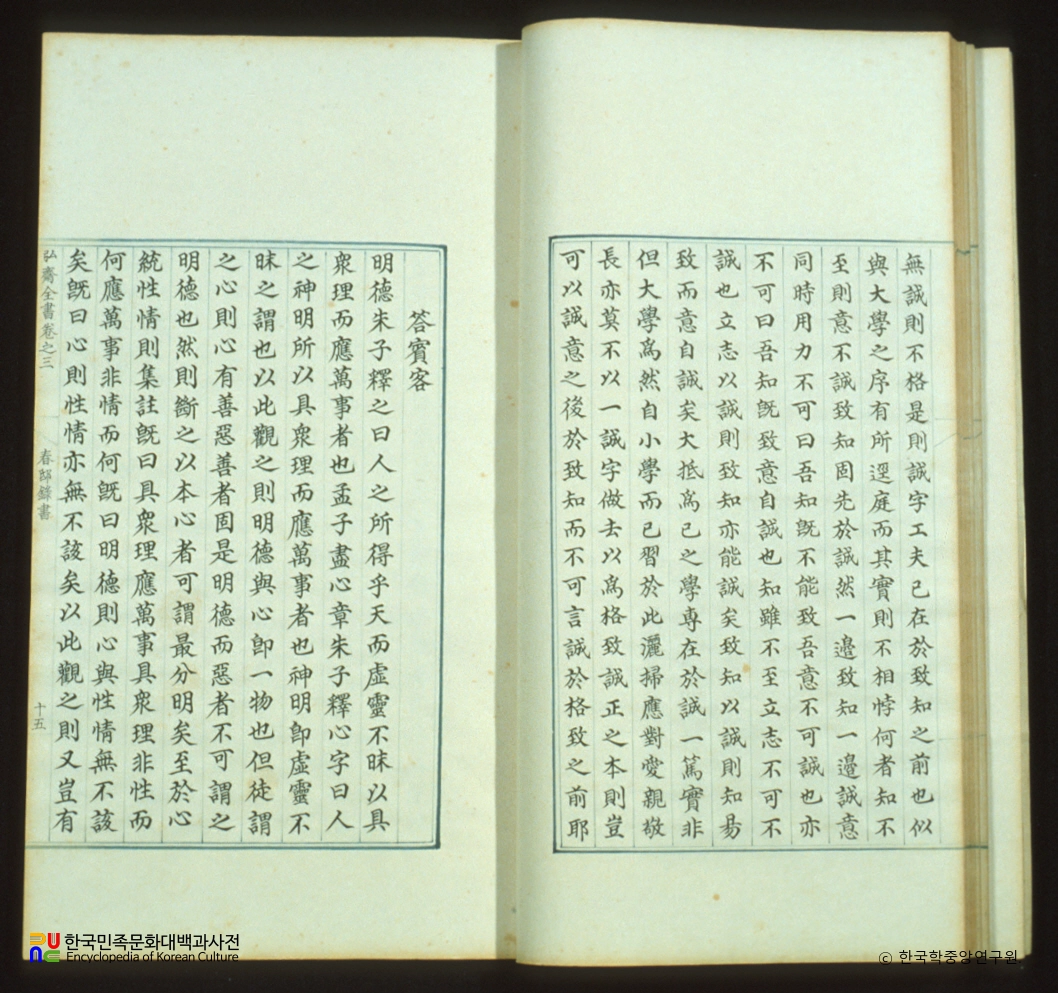 無誠則不格是則誠字工夫已在於致知之前也似
與大學之序有所逕庭而其實則不相悖何者知不
至則意不誠致知固先於誠然一邊致知一邊誠意
同時用力不可曰吾知旣不能致吾意不可誠也亦
不可曰吾知旣致意自誠也知雖不至立志不可不
誠也立志以誠則致知亦能誠矣致知以誠則知易
致而意自誠矣大抵爲己之學專在於誠一篤實非
但大學爲然自小學而已習於此灑掃應對愛親敬
長亦莫不以一誠字做去以爲格致誠正之本則豈
可以誠意之後於致知而不可言誠於格致之前耶
答賓客
明德朱子釋之曰人之所得乎天而虛靈不昧以具
衆理而應萬事者也孟子盡心章朱子釋心字曰人
之神明所以具衆理而應萬事者也神明卽虛靈不
昧之謂也以此觀之則明德與心卽一物也但徒謂
之心則心有善惡善者固是明德而惡者不可謂之
明德也然則斷之以本心者可謂最分明矣至於心
統性情則集註旣曰具衆理應萬事具衆理非性而
何應萬事非情而何旣曰明德則心與性情無不該
矣旣曰心則性情亦無不該矣以此觀之則又豈有
弘齋全書卷之三 春邸錄書 十五
한국민족문화대백과사전
Encyclopedia of Korean Culture
ⓒ 한국학중앙연구원